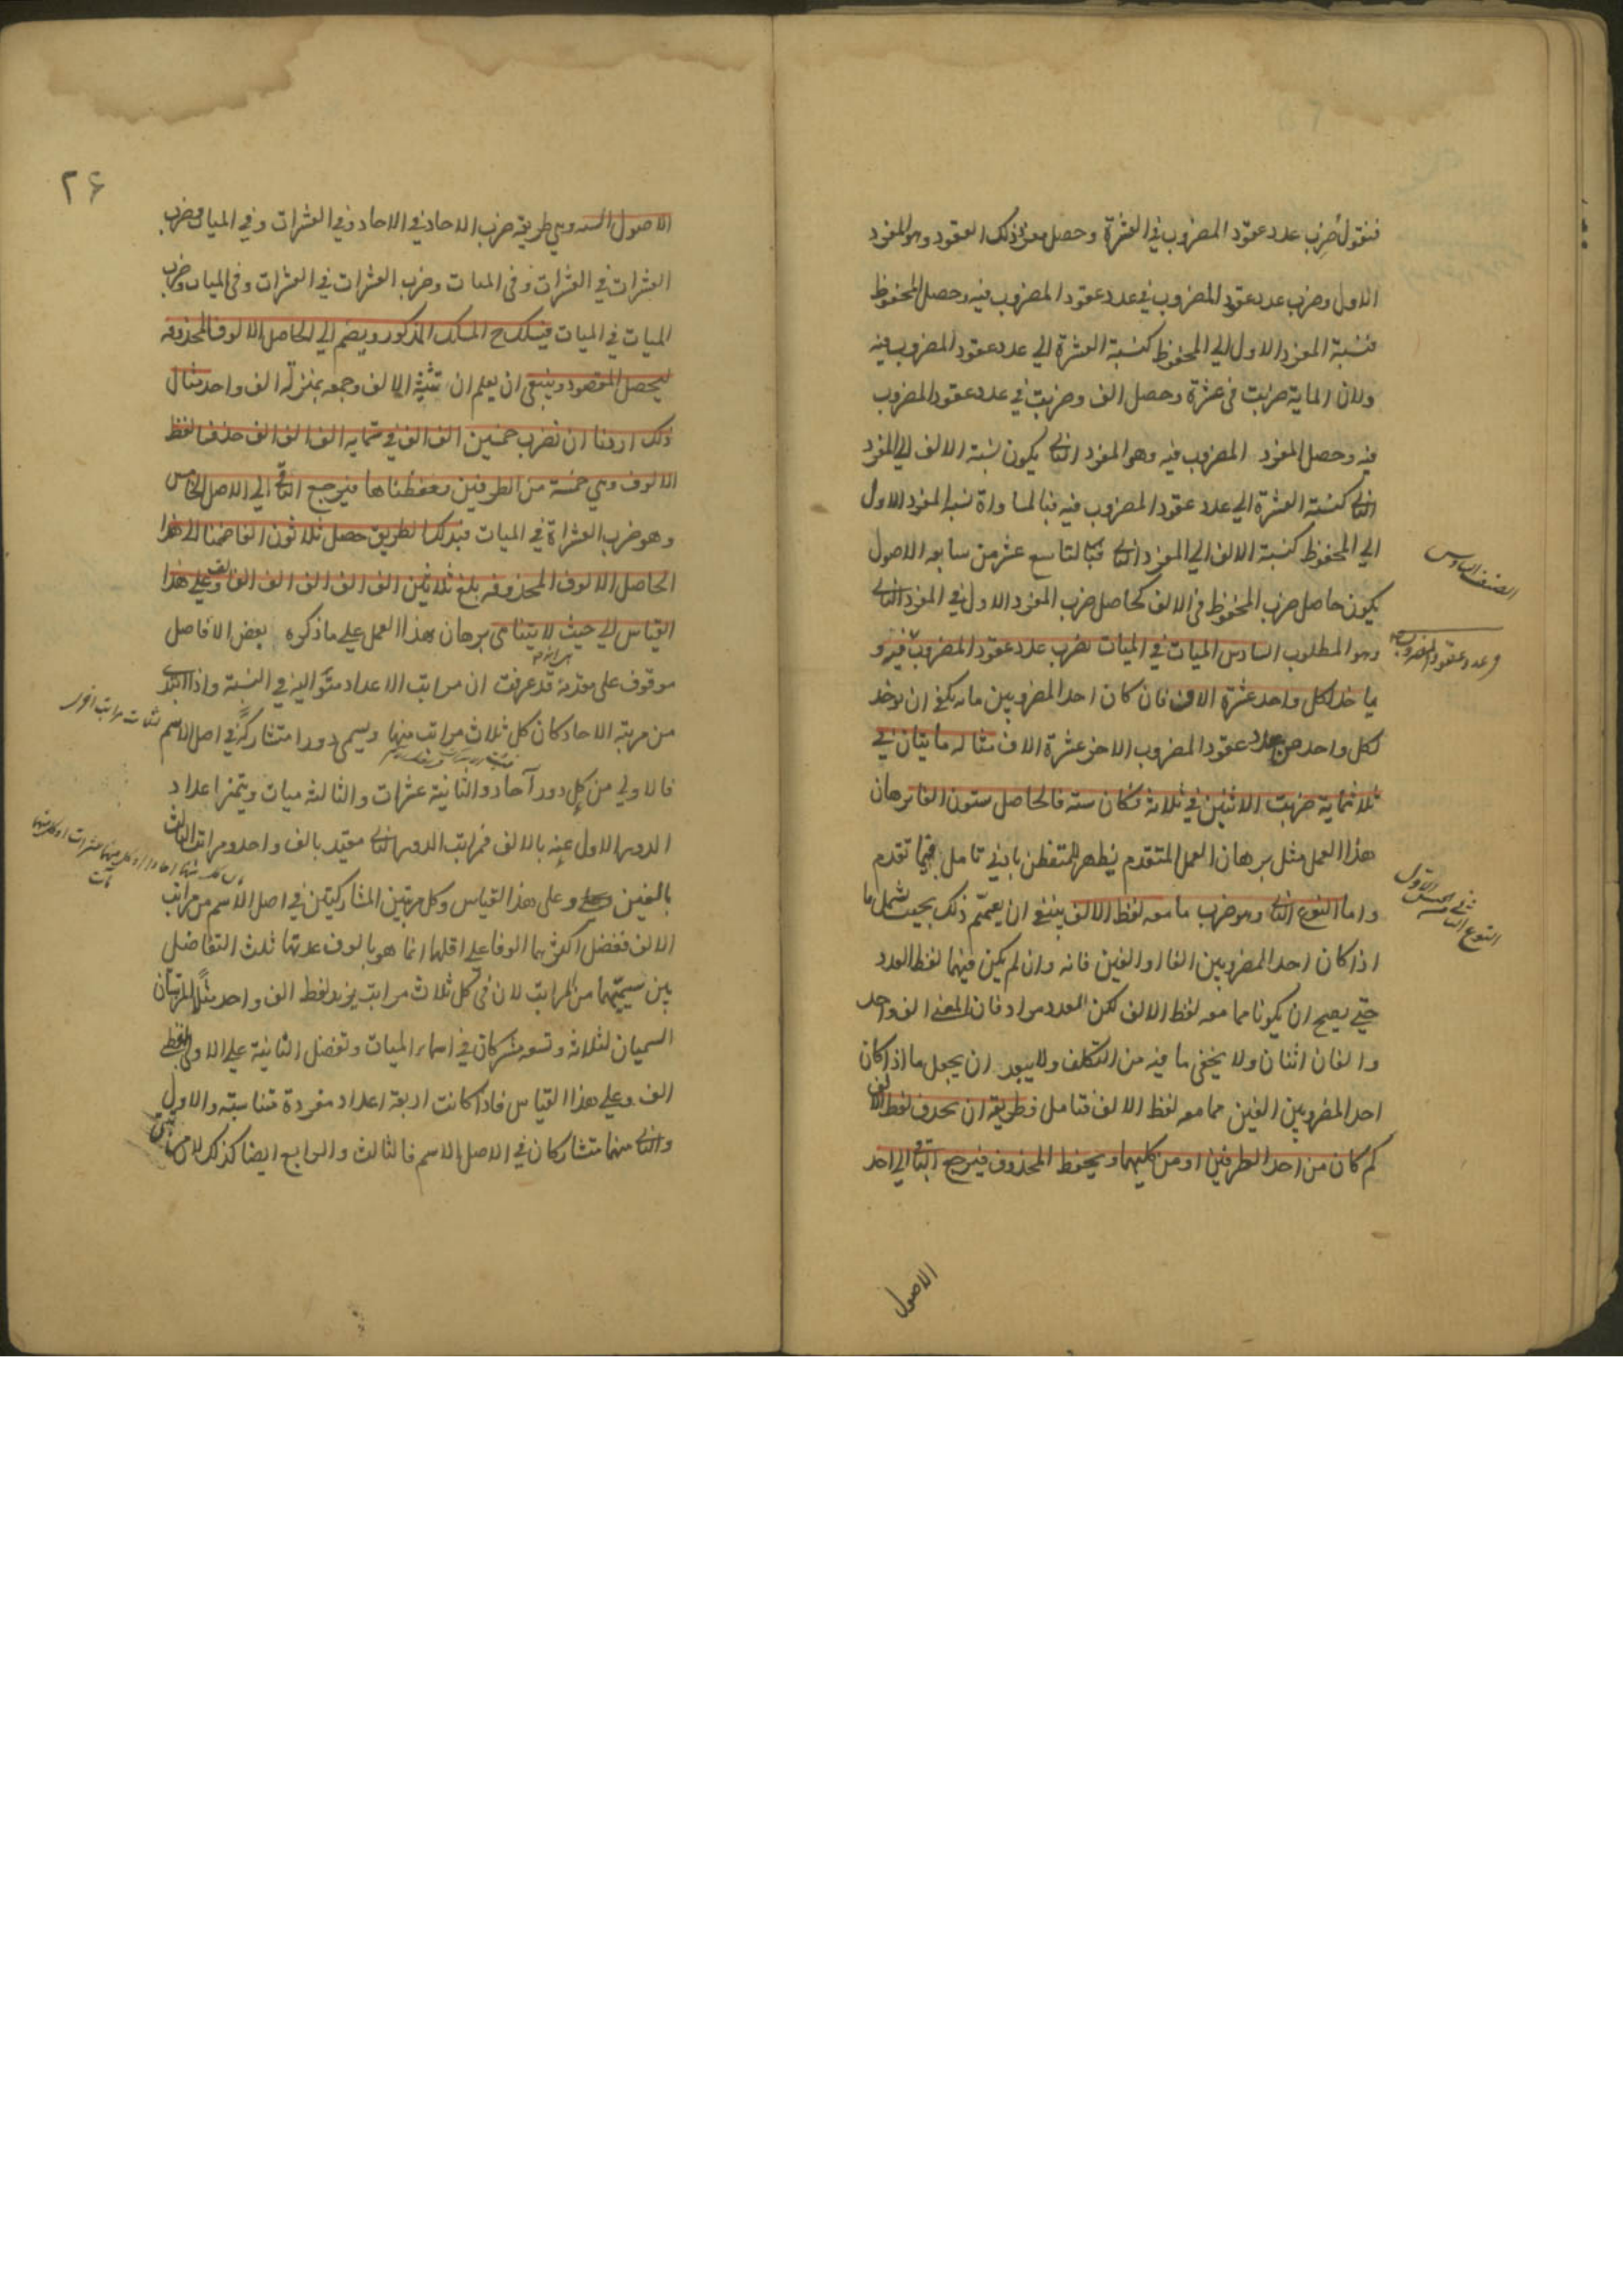 فنقول ضرب عدد عقود المضروب في العشرة وحصل مفرد ذلك العقود وهو المفرد
الاول وضرب عدد عقود المضروب في عدد عقود المضروب فيه وحصل المحفوظ
فنسبة المفرد الاول الي المحفوظ كنسبة العشرة الي عدد عقود المضروب فيه
ولان الماية ضربت في عشرة وحصل الف وضربت في عدد عقود المضروب
فيه وحصل المفرد المضروب فيه وهو المفرد الثاني يكون نسبة الالف الي المفرد
الثاني كنسبة العشرة الي عدد عقود المضروب فيه فبالمساواة نسبة المفرد الاول
الي المحفوظ كنسبة الالف الي المفرد الثاني فبالتاسع عشر من سابعه الاصول
يكون حاصل ضرب المحفوظ في الالف كحاصل ضرب المفرد الاول في المفرد الثاني
وهو المطلوب السادس الميات في الميات نضرب عدد عقود المضروب فيه و
ياخذ لكل واحد عشرة الاف فان كان احد المضروبين مايه يكفي ان يوخذ
لكل واحد من عدد عقود المضروب الاخر عشرة الاف مثاله مايتان في
ثلاثماية ضربت الاثنين في ثلاثة فكان ستة فالحاصل ستون الفا برهان
هذا العمل مثل برهان العمل المتقدم يظهر للمتفطن بادني تامل فيما تقدم
واما النوع الثاني وهو ضرب ما معه لفظ الالف ينبغي ان يعمم ذلك بحيث يشمل ما
اذا كان احد المضروبين الفا او الفين فانه وان لم يكن فيهما لفظ العدد
حتي يصح ان يكونا مما معه لفظ الالف لكن العدد مراد فان المعني الف واحد
والفان اثنان ولا يخفي ما فيه من التكلف ولا يبعد ان يجعل ما اذا كان
احد المضروبين الفين مما معه لفظ الالف فتامل فطريقه ان يحذف لفظ الالف
كم كان من احد الطرفين او من كليهما ويحفظ المحذوف فيرجع الباقي الي احد
الاصول
الصنف السادس
في عدد عقود المضروب
النوع الثاني
٢٤
الاصول الستة وهي طريقة ضرب الاحاد في الاحاد وفي العشرات وفي الميات وضرب
العشرات في العشرات وفي الميات وضرب العشرات في العشرات وفي الميات وضرب
الميات في الميات فيسلك ح المسلك المذكور ويضم الي الحاصل الالوف المحذوفة
ليحصل المقصود وينبغي ان يعلم ان تثنية الالف وجمعه بمنزلة الف واحد مثال
ذلك اردنا ان نضرب خمسين الف الف في ستمايه الف الف الف حذف لفظ
الالوف وهي خمسة من الطرفين وحفظناها فيرجع الباقي الي الاصل الخامس
وهو ضرب العشرات في الميات فبذلك الطريق حصل ثلاثون الفا ضمنا الي هذا
الحاصل الالوف المحذوفة بلغ ثلاثين الف الف الف الف الف الف وعلي هذا
القياس الي حيث لا يتناهي برهان هذا العمل علي ما ذكره بعض الافاضل
موقوف علي مقدمة قد عرفت ان مراتب الاعداد متوالية في النسبة واذا ابتدئ
من مرتبة الاحاد كان كل ثلاث مراتب منها ويسمي دورا متشاركة في اصل الاسم
فالاولي من كل دور آحاد والثانية عشرات والثالثة ميات ويتميز اعداد
الدور الاول عنه بالالف فمراتب الدور الثاني مقيد بالف واحد ومراتب الثالث
بالفين وعلي هذا القياس وكل مرتبتين المشاركتين في اصل الاسم من مراتب
الالف ففضل اكثرهما الوفا علي اقلهما انما هو بالوف عدتها ثلث التفاضل
بين سميتهما من المراتب لان في كل ثلاث مراتب يزيد لفظ الف واحد مثلا المرتبتان
السميان لثلاثة وتسعة مشتركان في اسماء الميات وتفضل الثانية علي الاولي بلفظي
الف وعلي هذا القياس فاذا كانت اربعة اعداد مفردة متناسبة والاول
والثاني منهما متشاركان في الاصل الاسم فالثالث والرابع ايضا كذلك لان
لثلاث مراتب اخري